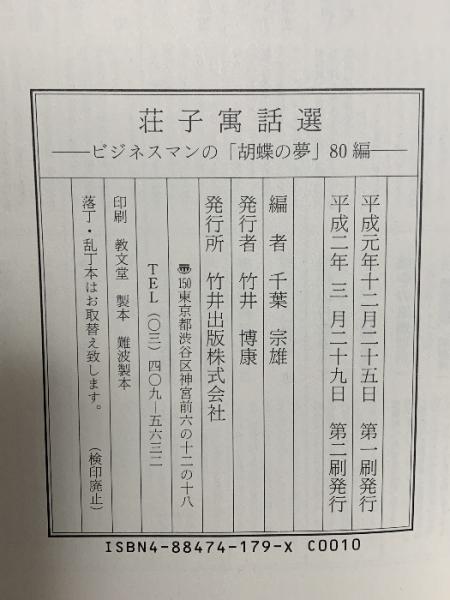 荘子寓話選
―ビジネスマンの「胡蝶の夢」80編―
平成元年十二月二十五日 第一刷発行
平成二年 三 月二十九日 第二刷発行
編 者 千葉 宗雄
発行者 竹井 博康
発行所 竹井出版株式会社
〠150東京都渋谷区神宮前六の十二の十八
TEL(〇三)四〇九―五六三二
印刷 教文堂 製本 難波製本
落丁・乱丁本はお取替え致します。 (検印廃止)
ISBN4-88474-179-X C0010